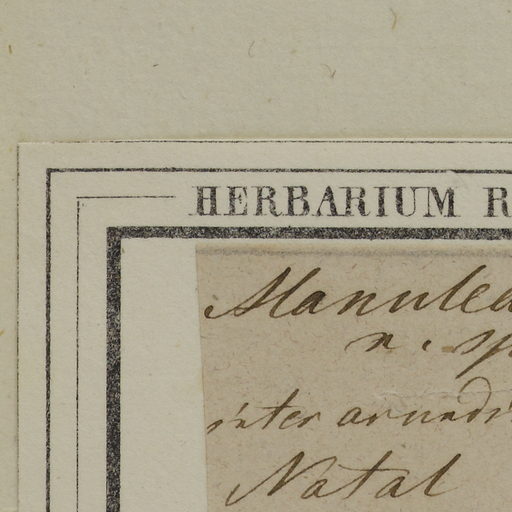 HERBARIUM R
Manulea
n. sp
inter arundi
Natal